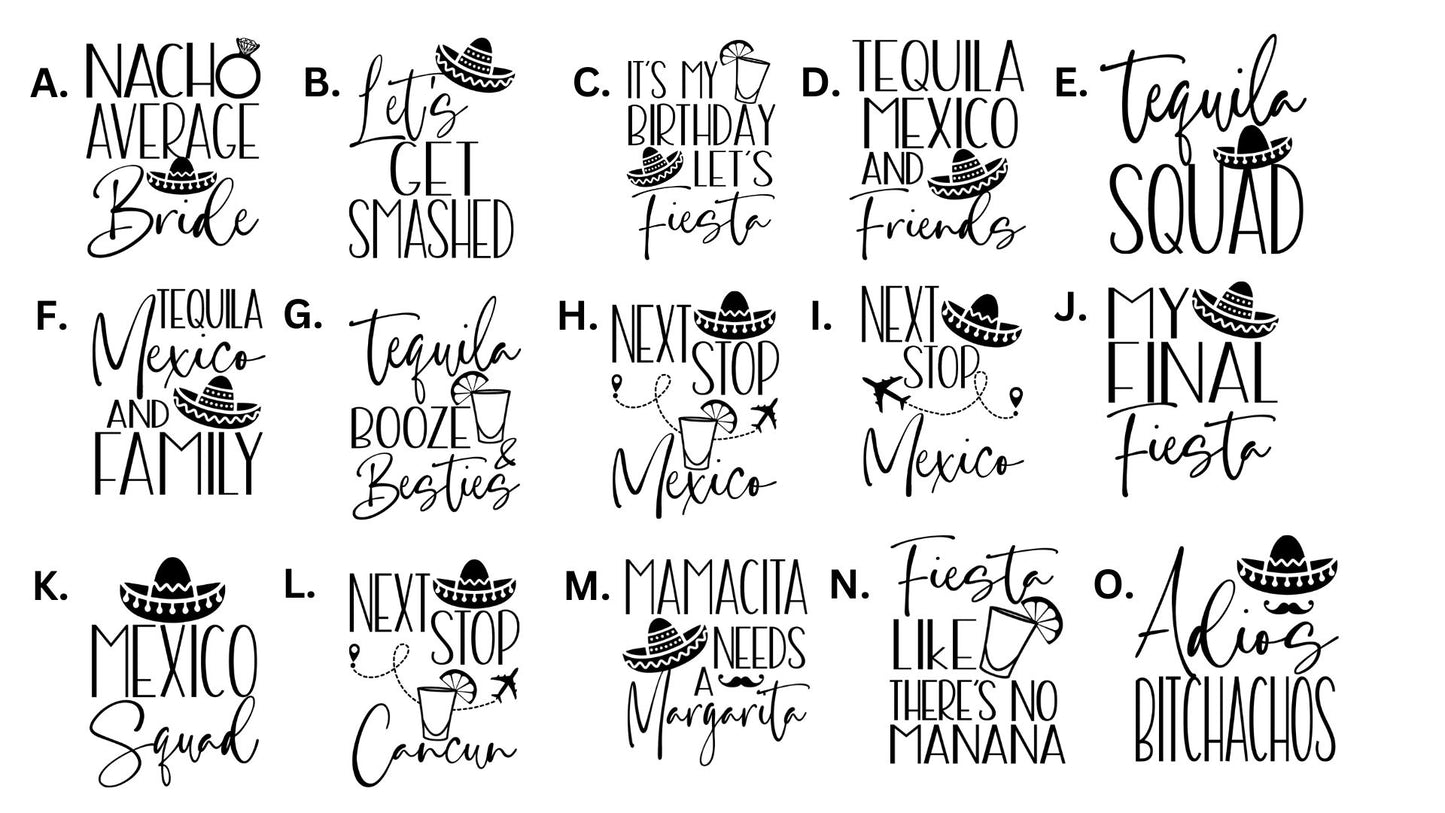 A. NACHO
AVERAGE
Bride
B. Let's
GET
SMASHED
C. IT'S MY
BIRTHDAY
LET'S
Fiesta
D. TEQUILA
MEXICO
AND
Friends
E. Tequila
SQUAD
F. TEQUILA
Mexico
AND
FAMILY
G. Tequila
BOOZE
&
Besties
H. NEXT
STOP
Mexico
I. NEXT
STOP
Mexico
J. MY
FINAL
Fiesta
K. MEXICO
Squad
L. NEXT
STOP
Cancun
M. MAMACITA
NEEDS
A
Margarita
N. Fiesta
LIKE
THERE'S NO
MANANA
O. Adios
BITCHACHOS